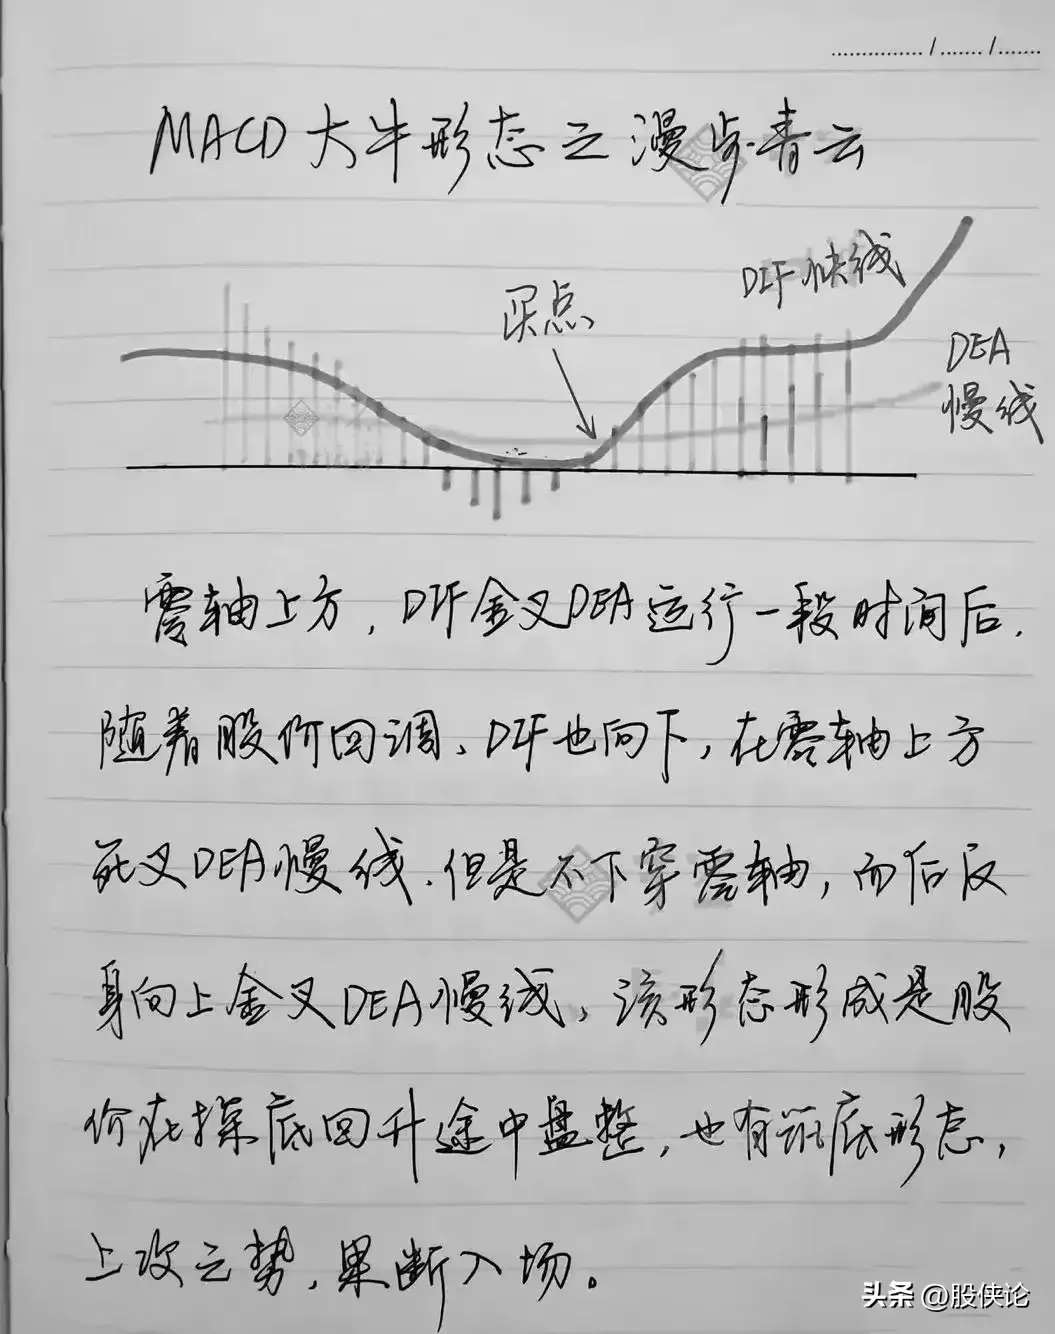 MACD大牛形态之漫步青云
买点
DIF快线
DEA
慢线
零轴上方，DIF金叉DEA运行一段时间后，
随着股价回调、DIF也向下，在零轴上方
死叉DEA慢线．但是不下穿零轴，而后反
身向上金叉DEA慢线，该形态形成是股
价在探底回升途中盘整，也有筑底形态，
上攻之势，果断入场。
头条 @股侠论